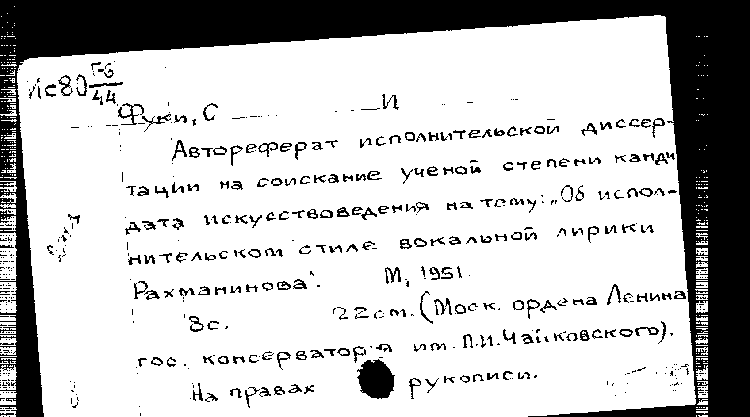 Ис80 Г-6/44
Фукс, С И
Автореферат исполнительской диссер-
тации на соискание ученой степени канди
дата искусствоведения на тему: „Об испол-
нительском стиле вокальной лирики
Рахманинова". М, 1951.
8с. 22см. (Моск. ордена Ленина
гос. консерватория им. П.И. Чайковского).
На правах рукописи.